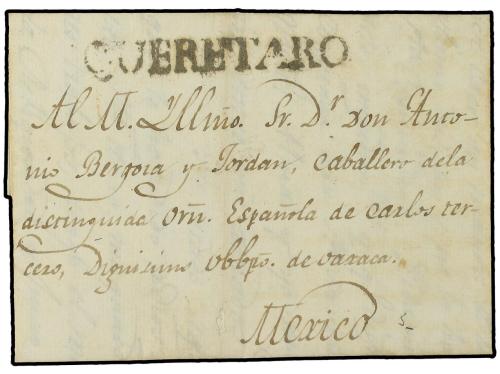 QUERETARO
Al M. Yllño. Sr. Dr. Don Anto-
nio Bergosa y Jordan, Caballero dela
distinguida Orñ. Española de Carlos ter-
cero, Dignisimo Obbpo. de Oaxaca.
Mexico